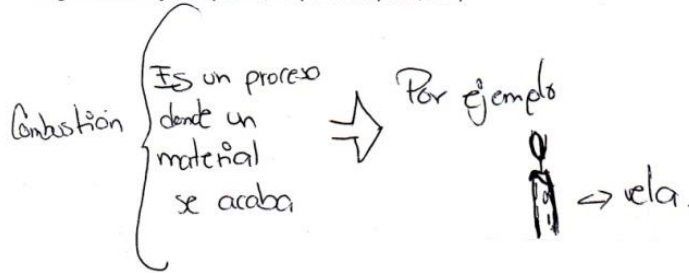 Combustión
Es un proceso
donde un
material
se acaba
Por ejemplo
vela.